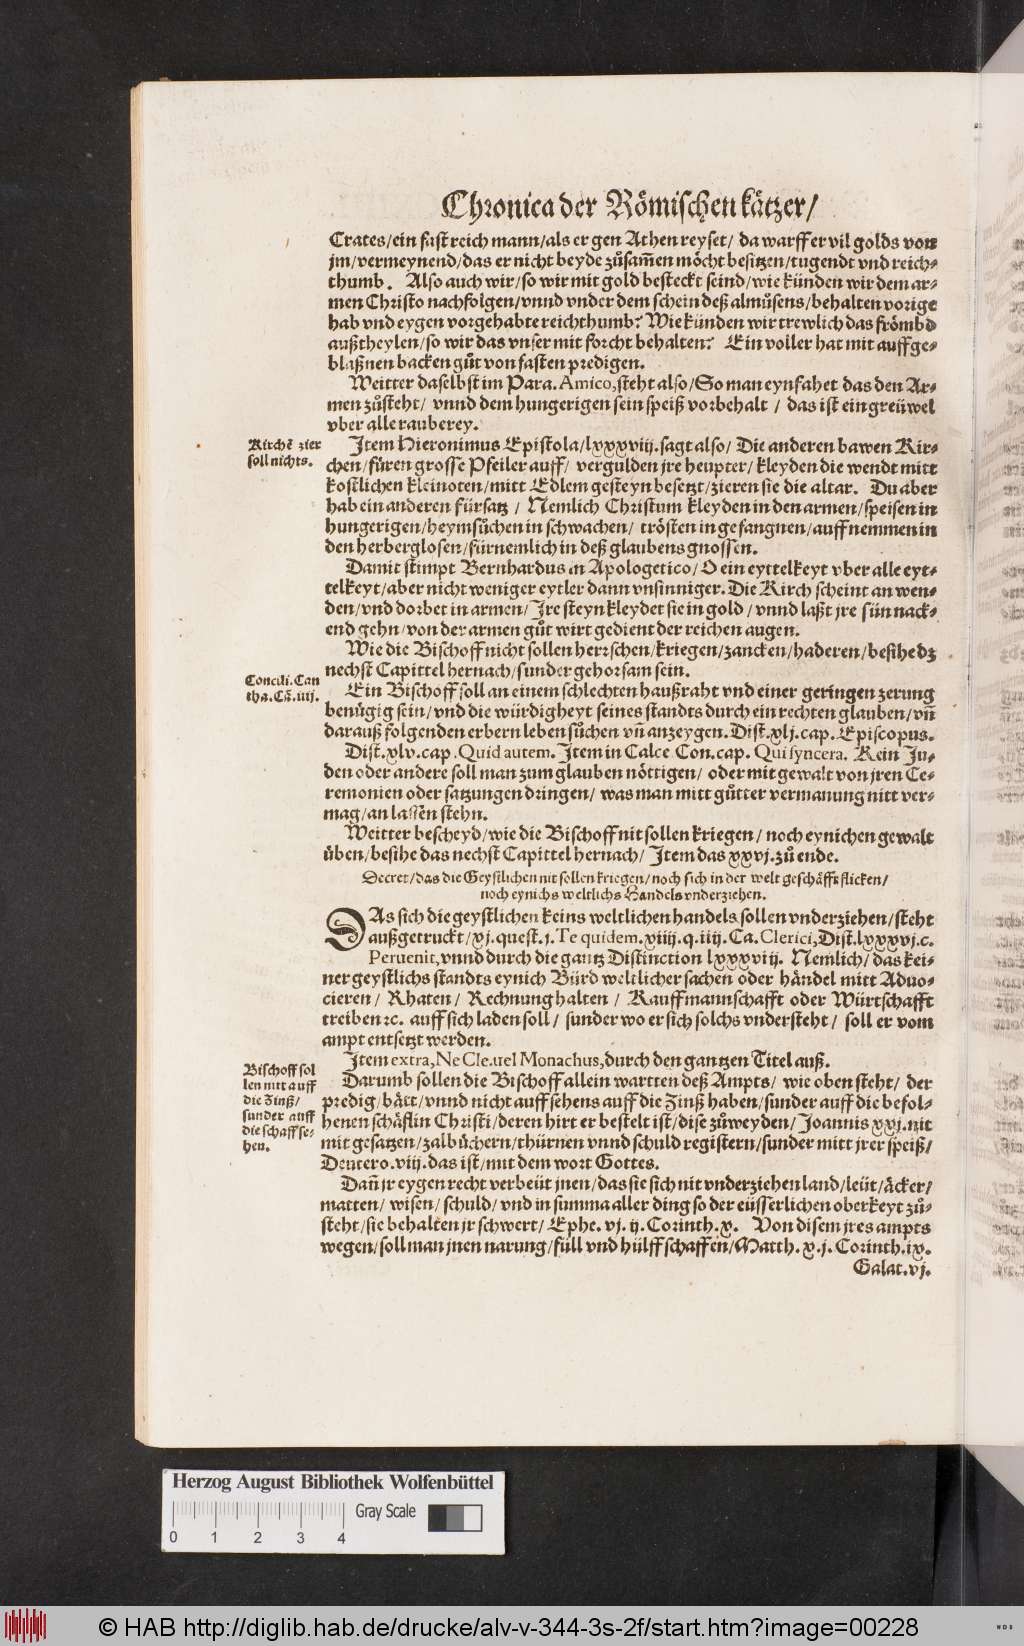 Chronica der Römischen kätzer/
Crates/ein fast reich mann/als er gen Athen reyset/ da warff er vil golds von
jm/vermeynend/das er nicht beyde zůsam̃en möcht besitzen/tugendt vnd reich⸗
thumb. Also auch wir/so wir mit gold besteckt seind/wie künden wir dem ar⸗
men Christo nachfolgen/vnnd vnder dem schein deß almůsens/behalten vorige
hab vnd eygen vorgehabte reichthumb? Wie künden wir trewlich das frömbd
außtheylen/so wir das vnser mit forcht behalten? Ein voller hat mit auffge⸗
blaßnen backen gůt von fasten predigen.
Weitter daselbst im Para. Amico, steht also/So man eynfahet das den Ar⸗
men zůsteht/ vnnd dem hungerigen sein speiß vorbehalt / das ist ein greüwel
vber alle rauberey.
Kirchẽ zier
soll nichts.
Item Hieronimus Epistola/lxxxviij. sagt also/ Die anderen bawen Kir⸗
chen/füren grosse Pfeiler auff/ vergulden jre heupter/kleyden die wendt mitt
kostlichen kleinoten/mitt Edlem gesteyn besetzt/zieren sie die altar. Du aber
hab ein anderen fürsatz / Nemlich Christum kleyden in den armen/speisen in
hungerigen/heymsůchen in schwachen/ trösten in gefangnen/auffnemmen in
den herberglosen/fürnemlich in deß glaubens gnossen.
Damit stimpt Bernhardus in Apologetico/O ein eyttelkeyt vber alle eyt⸗
telkeyt/aber nicht weniger eytler dann vnsinniger. Die Kirch scheint an wen⸗
den/vnd dorbet in armen/ Jre steyn kleydet sie in gold / vnnd laßt jre sün nack⸗
end gehn/von der armen gůt wirt gedient der reichen augen.
Wie die Bischoff nicht sollen herrschen/kriegen/zancken/haderen/besihe dz
nechst Capittel hernach/sunder gehorsam sein.
Concili. Car
tha. Cã. iiij.
Ein Bischoff soll an einem schlechten haußraht vnd einer geringen zerung
benügig sein/vnd die würdigheyt seines standts durch ein rechten glauben/vñ
darauß folgenden erbern leben sůchen vñ anzeygen. Dist. xlj. cap. Episcopus.
Dist. xlv. cap. Quid autem. Item in Calce Con. cap. Qui syncera. Kein Ju⸗
den oder andere soll man zum glauben nöttigen/ oder mit gewalt von jren Ce⸗
remonien oder satzungen dringen/ was man mitt gůtter vermanung nitt ver⸗
mag/an lassen stehn.
Weitter bescheyd/wie die Bischoff nit sollen kriegen/ noch eynichen gewalt
üben/besihe das nechst Capittel hernach/ Item das xxvj. zů ende.
Decret/das die Geystlichen nit sollen kriegen/noch sich in der welt geschäfft flicken/
noch eynichs weltlichs Handels vnderziehen.
DAs sich die geystlichen keins weltlichen handels sollen vnderziehen/steht
außgetruckt/xj. quest. j. Te quidem. xiiij. q. iiij. Ca. Clerici, Dist. lxxxvj. c.
Peruenit, vnnd durch die gantz Distinction lxxxviij. Nemlich/ das kei⸗
ner geystlichs standts eynich Bürd weltlicher sachen oder händel mitt Aduo⸗
cieren / Rhaten / Rechnung halten / Kauffmannschafft oder Würtschafft
treiben ꝛc. auff sich laden soll / sunder wo er sich solchs vndersteht / soll er vom
ampt entsetzt werden.
Item extra, Ne Cle. uel Monachus, durch den gantzen Titel auß.
Bischoff sol
len nitt auff
die Zinß/
sunder auff
die schaff se⸗
hen.
Darumb sollen die Bischoff allein wartten deß Ampts/ wie oben steht/ der
predig/bätt/vnnd nicht auffsehens auff die Zinß haben/sunder auff die befol⸗
henen schäflin Christi/deren hirt er bestelt ist/dise zůweyden/ Joannis xxj. nit
mit gesatzen/zalbůchern/thürnen vnnd schuld registern/sunder mitt jrer speiß/
Deutero. viij. das ist/mit dem wort Gottes.
Dañ jr eygen recht verbeüt jnen/das sie sich nit vnderziehen land/leüt/äcker/
matten/ wisen/ schuld/ vnd in summa aller ding so der eüsserlichen oberkeyt zů⸗
steht/sie behalten jr schwert/ Ephe. vj. ij. Corinth. x. Von disem jres ampts
wegen/soll man jnen narung/füll vnd hülff schaffen/Matth. x. j. Corinth. ix.
Galat. vj.
Herzog August Bibliothek Wolfenbüttel
Gray Scale
0 1 2 3 4
© HAB http://diglib.hab.de/drucke/alv-v-344-3s-2f/start.htm?image=00228